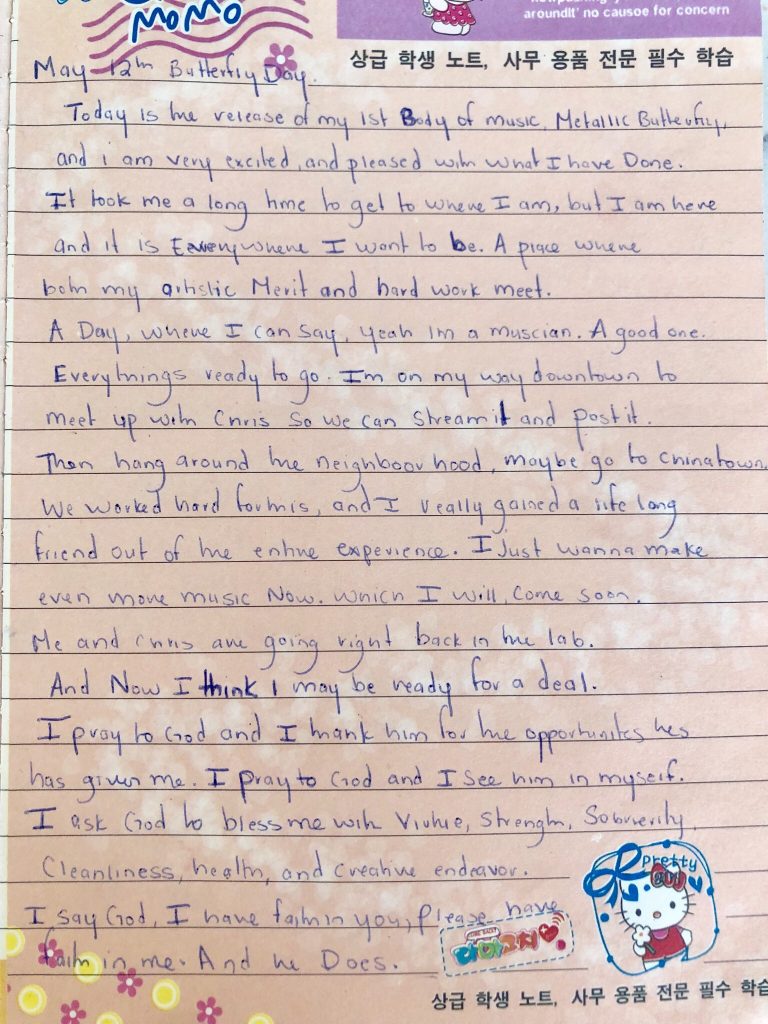 MOMO
aroundit' no causoe for concern
상급 학생 노트, 사무 용품 전문 필수 학습
May 12th Butterfly Day.
Today is the release of my 1st Body of music, Metallic Butterfly,
and i am very excited, and pleased with what I have Done.
It took me a long time to get to where I am, but I am here
and it is Everywhere I want to be. A place where
both my artistic Merit and hard work meet.
A Day, where I can say, yeah Im a muscian. A good one.
Everythings ready to go. I'm on my way downtown to
meet up with Chris so we can stream it and post it.
Then hang around the neighboorhood, maybe go to chinatown.
We worked hard for this, and I really gained a life long
friend out of the entire experience. I Just wanna make
even more music Now. Which I will, Come soon.
Me and Chris are going right back in the lab.
And Now I think i may be ready for a deal.
I pray to God and I thank him for the opportunites hes
has given me. I pray to God and I see him in myself.
I ask God to bless me with Virtue, Strength, Soberierity,
Cleanliness, health, and creative endeavor.
I say God, I have faith in you, please have
faith in me. And he Does.
Pretty
다마고치
상급 학생 노트, 사무 용품 전문 필수 학습